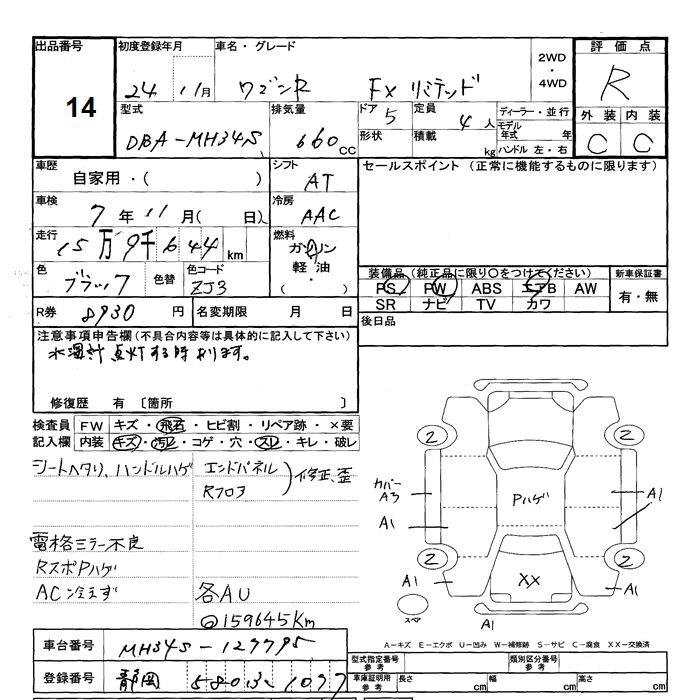 出品番号
14
初度登録年月
24年 11月
車名・グレード
ワゴンR FX リミテッド
2WD
・
4WD
評価点
R
型式
DBA-MH34S
排気量
660cc
ドア
5
形状
定員
4人
積載
kg
ディーラー・並行
モデル年式 年
ハンドル 左・右
外装 内装
C C
車歴
自家用・( )
シフト
AT
セールスポイント (正常に機能するものに限ります)
車検
7年11月( 日)
冷房
AAC
走行
15万9千644km
燃料
ガソリン
軽油・
( )
色
ブラック
色替
色コード
ZJ3
装備品 (純正品に限り○をつけてください)
PS PW ABS エアB AW
SR ナビ TV カワ
新車保証書
有・無
R券
8930円
名変期限 月 日
後日品
注意事項申告欄(不具合内容等は具体的に記入して下さい)
水温計点灯する時あります。
修復歴 有 〔箇所 〕
検査員
記入欄
FW キズ・飛石・ヒビ割・リペア跡・×要
内装 キズ・汚レ・コゲ・穴・スレ・キレ・破レ
シートヘタリ、ハンドルハゲ
エンドパネル
Rフロア
修正、歪
電格ミラー不良
RスポPハゲ
AC冷えず
各AU
@159645Km
2
2
2
2
カバー
A3
A1
Pハゲ
A1
A1
XX
A1
スペア
A1
A-キズ E-エクボ U-凹み W-補修跡 S-サビ C-腐食 XX-交換済
車台番号
MH34S-129795
登録番号
静岡 580 1077
型式指定番号
参考
類別区分番号
参考
車庫証明用
参考
長さ cm
幅 cm
高さ cm